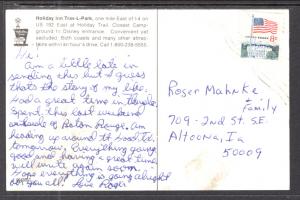 Holiday Inn Trav-L-Park, one mile East of I-4 on
US 192 East of Holiday Trail. Closest Camp-
ground to Disney entrance. Convenient yet
secluded. Both coasts and many other attrac-
tions within an hour's drive. Call 1-800-238-5555.
Hi!
Am a little late in
sending this but I guess
that's the story of my life.
Had a great time in
spent this last weekend
outside of Baton Rouge. Am
heading
tomorrow. Everything going
good and having a great time
will write again soon.
Hope everything is going alright
for you all! Love
Roger Mahnke
Family
709-2nd St. S.E.
Altoona, Ia
50009